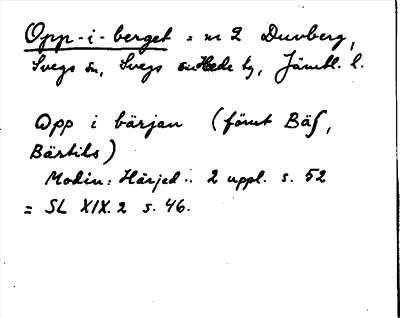 Opp-i-berget = nr 2 Duvberg,
Svegs sn, Svegs tg, Jämtl. l.
Opp i bärjan (förut Bäs,
Bärtils)
Modin: Härjed.. 2 uppl. s. 52
= SL XIX.2 s. 46.